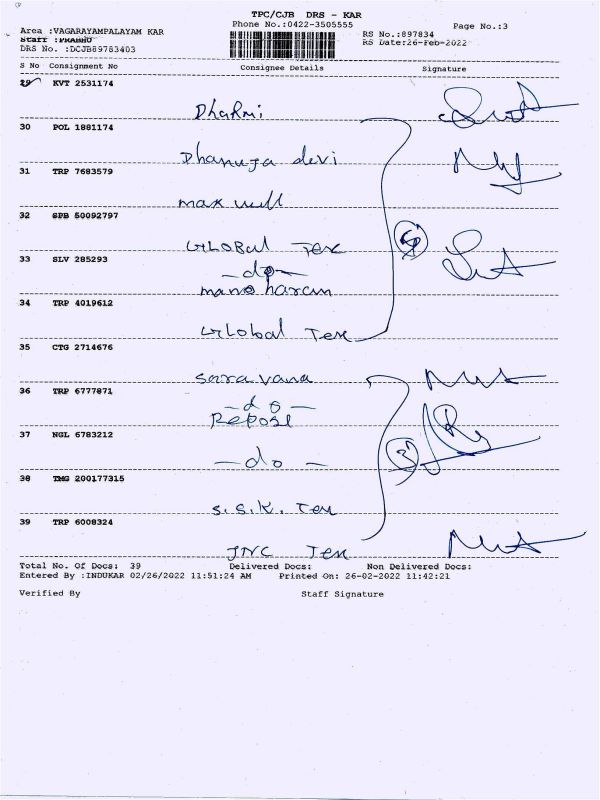 TPC/CJB DRS - KAR
Phone No.:0422-3505555
Page No.:3
Area :VAGARAYAMPALAYAM KAR
RS No.:897834
Staff :PRABHU
RS Date:26-Feb-2022
DRS No. :DCJB89783403
S No Consignment No Consignee Details Signature
29 KVT 2531174
Dharmi
30 POL 1881174
Dhanuja devi
31 TRP 7683579
32 SPB 50092797
GLOBal Tex
33 SLV 285293
—do—
manoharan
34 TRP 4019612
Global Tex
35 CTG 2714676
saravana
36 TRP 6777871
—do—
Repose
37 NGL 6783212
—do—
38 TMG 200177315
S.S.K. Tex
39 TRP 6008324
JNC Tex
Total No. Of Docs: 39 Delivered Docs: Non Delivered Docs:
Entered By :INDUKAR 02/26/2022 11:51:24 AM Printed On: 26-02-2022 11:42:21
Verified By Staff Signature